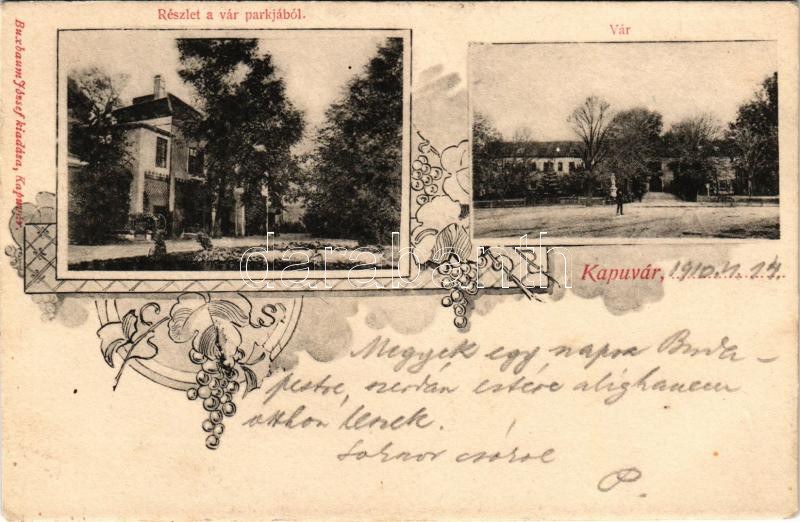 Részlet a vár parkjából.
Vár
Buxbaum József kiadása, Kapuvár.
darabanth
Kapuvár, 1910.
Megyek egy napra Buda-
pestre, szerdán estére alighanem
otthon leszek.
Sokszor csókol
P.